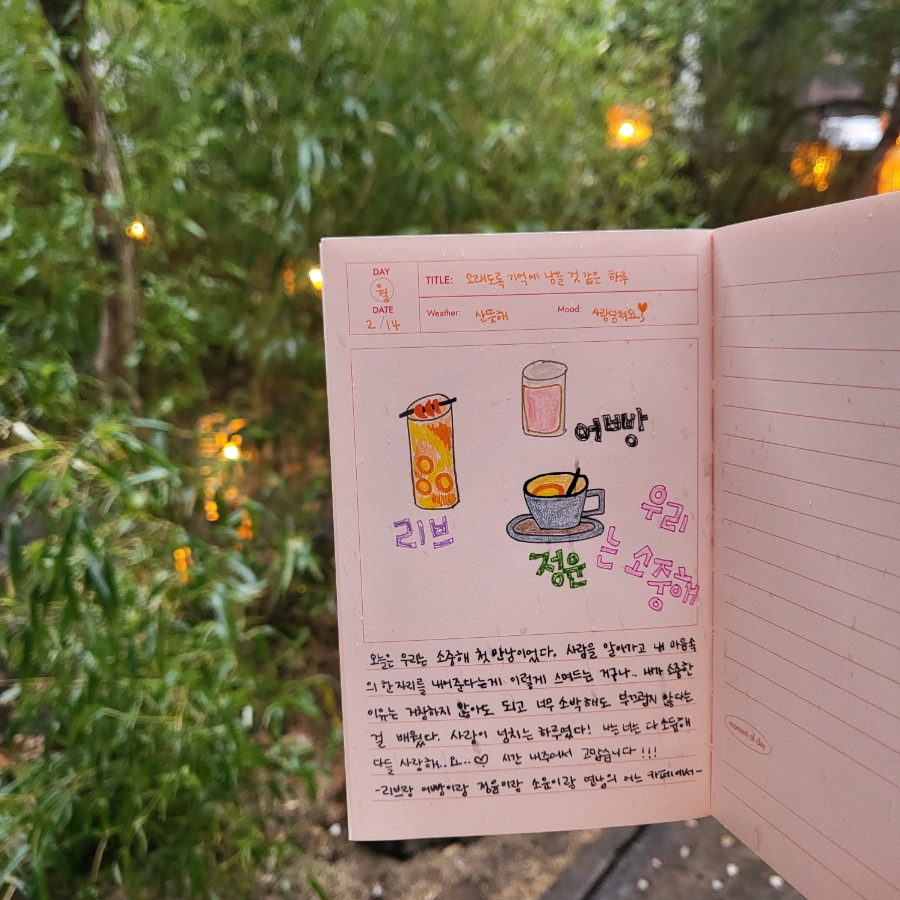 DAY
월
DATE
2/14
TITLE: 오래도록 기억에 남을 것 같은 하루
Weather: 산뜻해
Mood: 사랑넘쳐요
어쁘방
리브
정윤
우리
는 소중해
오늘은 우리는 소중해 첫 만남이었다. 사람을 알아가고 내 마음속
의 한 자리를 내어준다는게 이렇게 스며드는 거구나.. 내가 소중한
이유는 거창하지 않아도 되고 너무 소박해도 부끄럽지 않다는
걸 배웠다. 사랑이 넘치는 하루였다! 나는 너는 다 소중해
다들 사랑해..요...♡ 시간 내주어서 고맙습니다!!!
-리브랑 어쁘방이랑 정윤이랑 소윤이랑 연남의 어느 카페에서-
moment of day